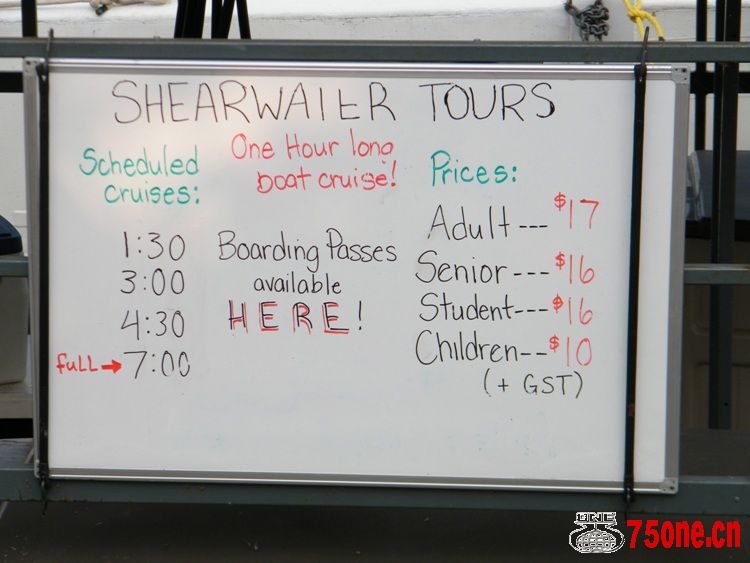 SHEARWATER TOURS
Scheduled
cruises:
1:30
3:00
4:30
FULL → 7:00
One Hour long
boat cruise!
Boarding Passes
available
HERE!
Prices:
Adult --- $17
Senior --- $16
Student --- $16
Children -- $10
(+ GST)
ONE
75one.cn